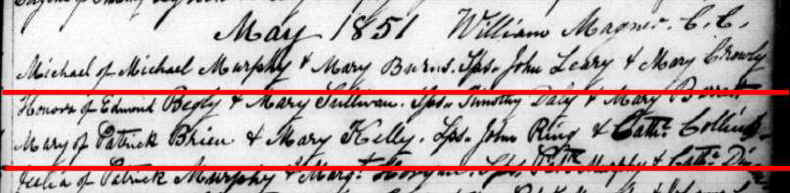 May 1851 William Magner. C.C.
Michael of Michael Murphy & Mary Burns. Sps. John Leary & Mary Crowly
Honora of Edmond Begly & Mary Sullivan. Sps. Timothy Daly & Mary Barrett
Mary of Patrick Brien & Mary Kelly. Sps. John Ring & Cath. Collins
of Patrick Murphy & Margt. Sps. Patk. Murphy & Cath.